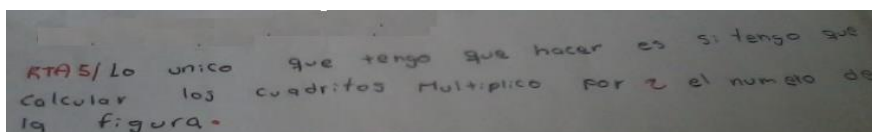 RTA 5/ Lo unico que tengo que hacer es si tengo que
calcular los cuadritos Multiplico por 2 el numero de
la figura.